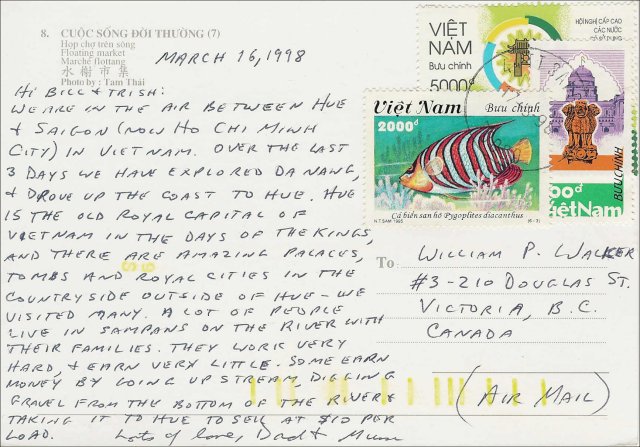 8. CUỘC SỐNG ĐỜI THƯỜNG (7)
Họp chợ trên sông
Floating market
Marché flottang
水榭市集
Photo by : Tam Thái
MARCH 16, 1998
HI BILL & TRISH:
WE ARE IN THE AIR BETWEEN HUE
& SAIGON (NOW HO CHI MINH
CITY) IN VIETNAM. OVER THE LAST
3 DAYS WE HAVE EXPLORED DA NANG,
& DROVE UP THE COAST TO HUE. HUE
IS THE OLD ROYAL CAPITAL OF
VIETNAM IN THE DAYS OF THE KINGS,
AND THERE ARE AMAZING PALACES,
TOMBS AND ROYAL CITIES IN THE
COUNTRYSIDE OUTSIDE OF HUE - WE
VISITED MANY. A LOT OF PEOPLE
LIVE IN SAMPANS ON THE RIVER WITH
THEIR FAMILIES. THEY WORK VERY
HARD, & EARN VERY LITTLE. SOME EARN
MONEY BY GOING UP STREAM, DIGGING
GRAVEL FROM THE BOTTOM OF THE RIVER &
TAKING IT TO HUE TO SELL AT $10 PER
LOAD. Lots of love, Dad & Mum
VIỆT
NAM
Bưu chính
5000đ
HỘI NGHỊ CẤP CAO
CÁC NƯỚC
Việt Nam Bưu chính
2000đ
Cá biển san hô Pygoplites diacanthus
N.T.SAM 1995 (6-3)
BƯU CHÍNH
00đ
ViệtNam
To
WILLIAM P. WALKER
#3-210 DOUGLAS ST.
VICTORIA, B.C.
CANADA
(AIR MAIL)